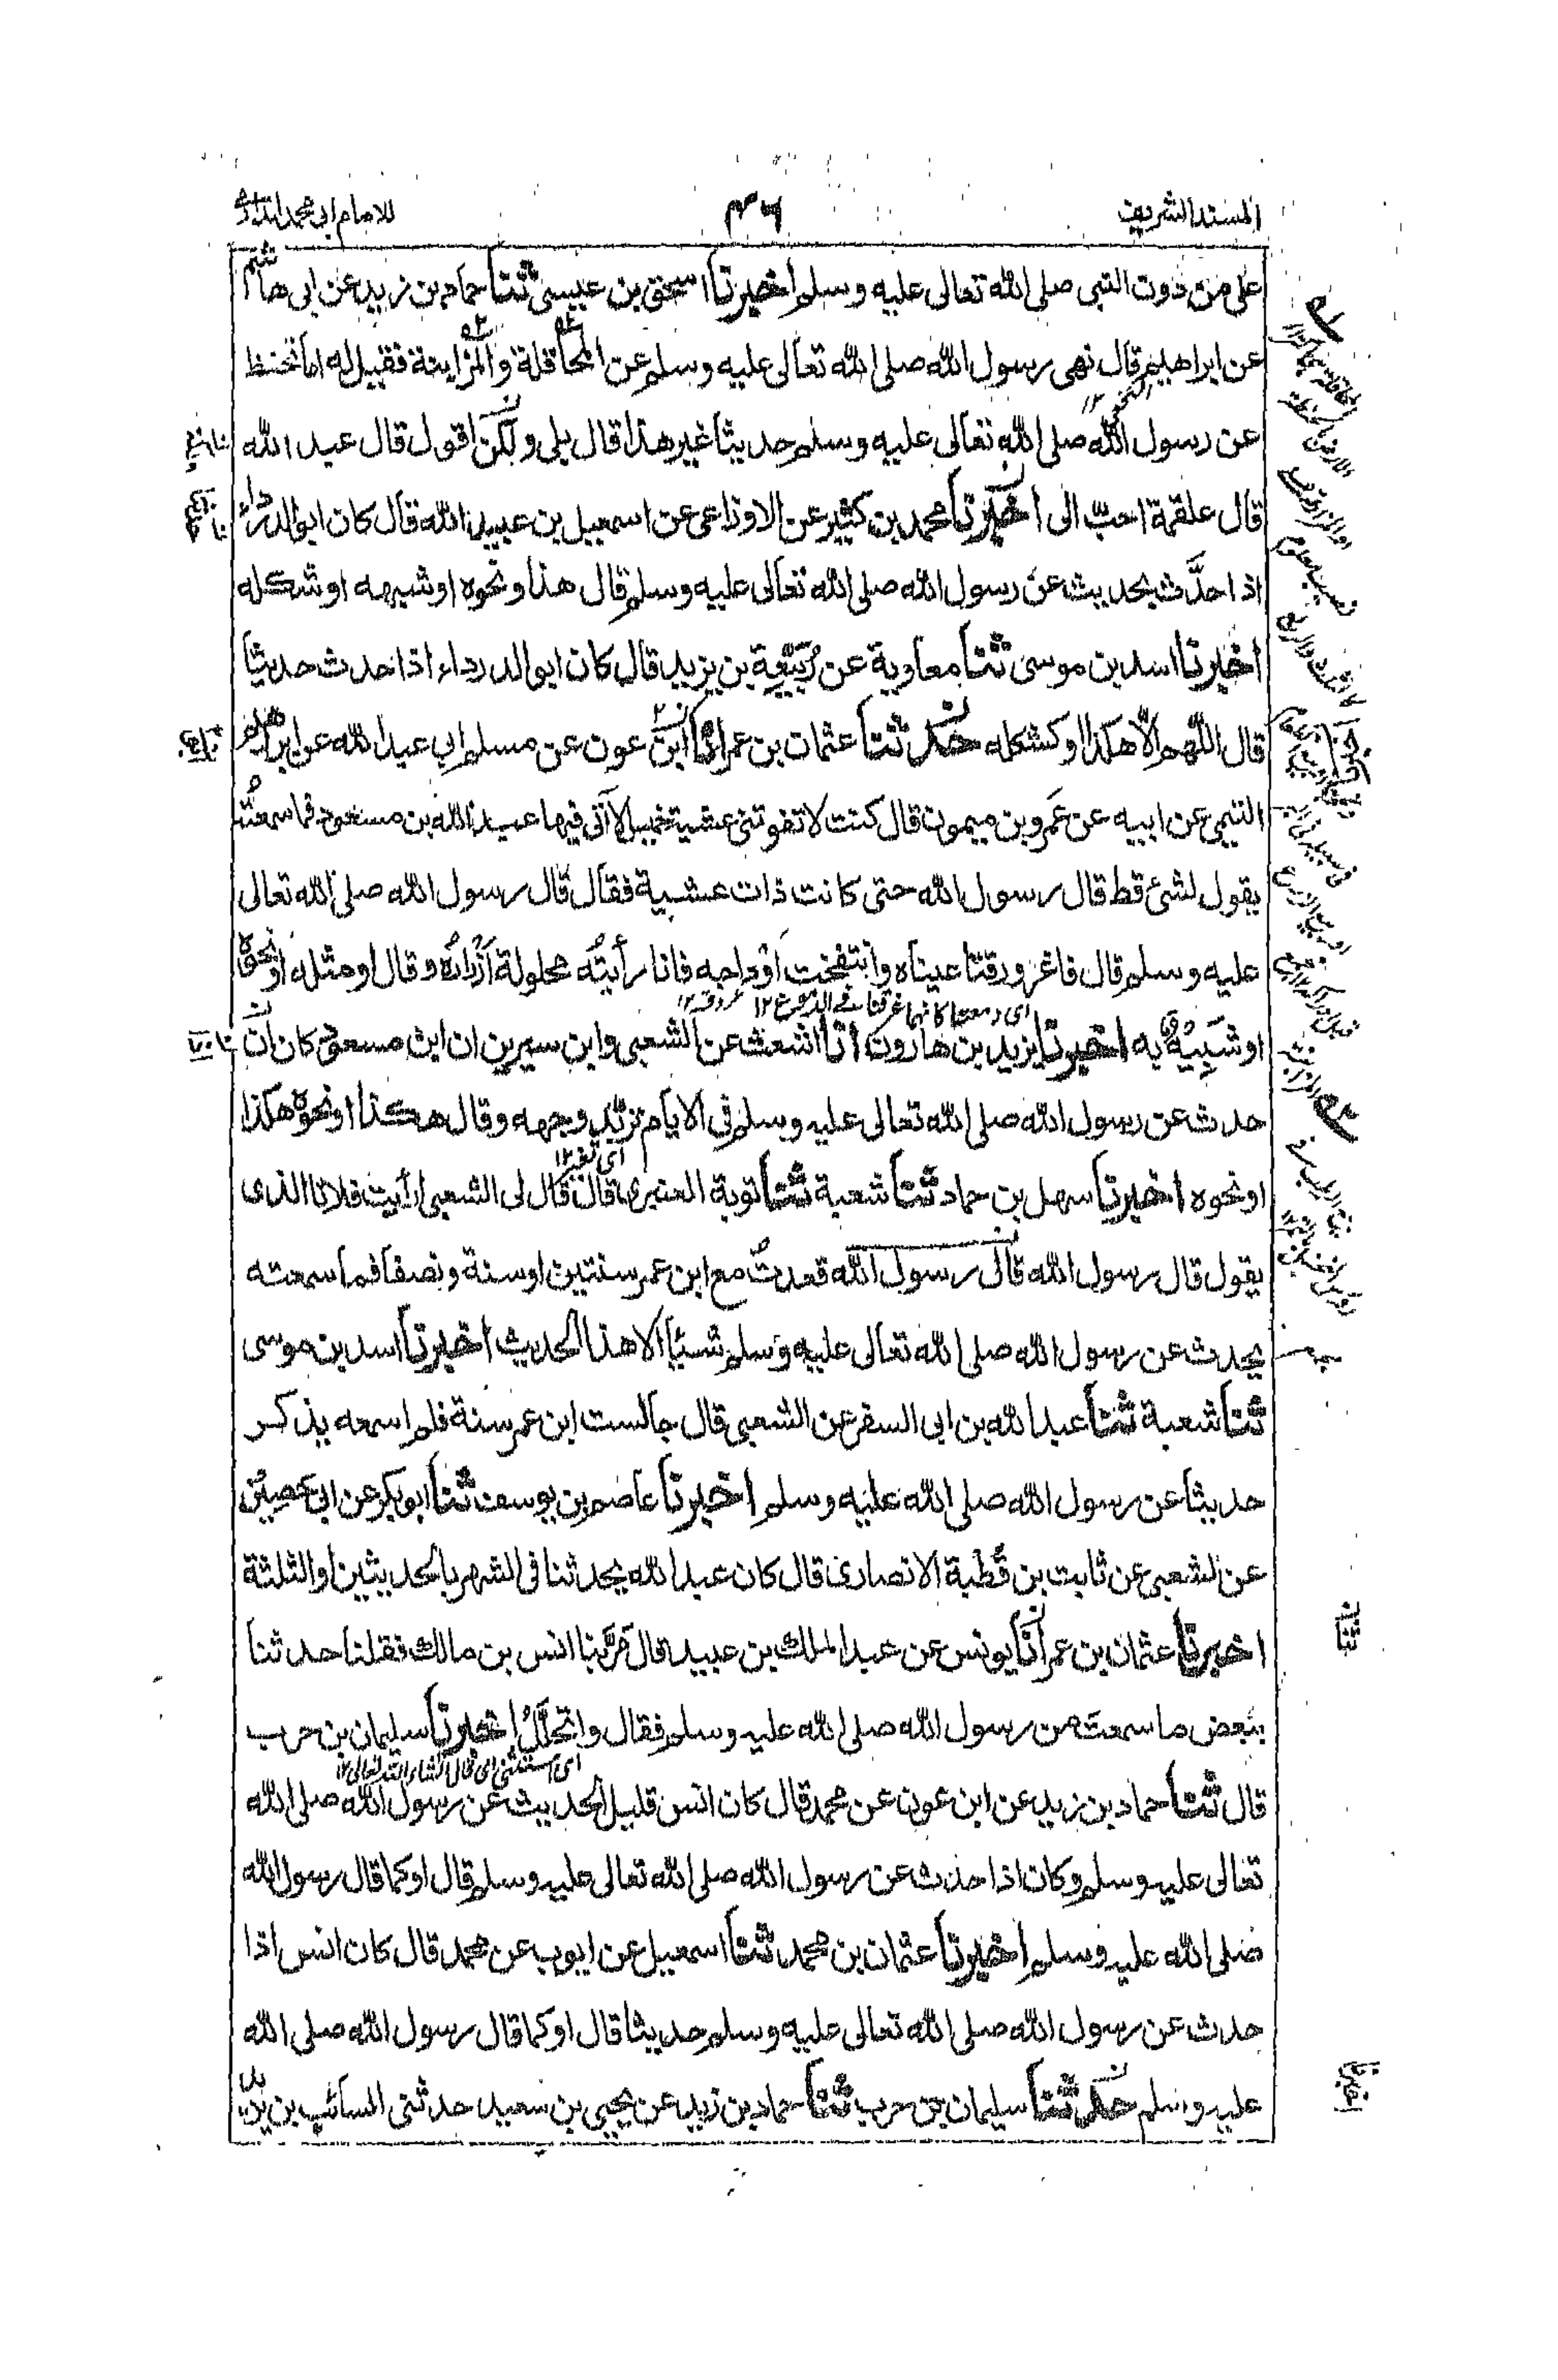 المسند الشريف
٤٦
للامام ابي محمد الدارمي
على من دون النبي صلى الله تعالى عليه وسلم اخبرنا اسحق بن عيسى ثنا حماد بن زيد عن ابي هاشم
عن ابراهيم قال نهى رسول الله صلى الله تعالى عليه وسلم عن المحاقلة والمزابنة فقيل له اما تحفظ
عن رسول الله صلى الله تعالى عليه وسلم حديثا غير هذا قال بلى ولكن اقول قال عبد الله
قال علقمة احبّ الى اخبرنا محمد بن كثير عن الاوزاعى عن اسمعيل بن عبيد الله قال كان ابو الدرداء
اذا حدَّث بحديث عن رسول الله صلى الله تعالى عليه وسلم قال هذا ونحوه او شبهه او شكله
اخبرنا اسد بن موسى ثنا معاوية عن رَبِيْعة بن يزيد قال كان ابو الدرداء اذا حدث حديثا
قال اللّهم الّا هكذا او كشكله حدثنا عثمان بن عمر انا ابن عون عن مسلم ابي عبد الله عن ابراهيم
التيمي عن ابيه عن عَمرو بن ميمون قال كنت لا تفوتنى عشية خميس الا آتى فيها عبد الله بن مسعود فما سمعتُه
يقول لشئ قط قال رسول الله حتى كانت ذات عشية فقال قال رسول الله صلى الله تعالى
عليه وسلم قال فاغرورقتا عيناه وانتفخت اَوْداجه فانا رأيتُه محلولة اَزْرارُه وقال او مثله او نحوه
اى دمعتا كانهما غرقتا فى الدمع ١٢
او شَبِيْهٌ به اخبرنا يزيد بن هارون انا اشعث عن الشعبى وابن سيرين ان ابن مسعود كان ان
حدث عن رسول الله صلى الله تعالى عليه وسلم فى الايام تربّد وجهه وقال هكذا او نحوه هكذا
اى تغير ١٢
او نحوه اخبرنا سهل بن حماد ثنا شعبة ثنا توبة العنبرى قال قال لى الشعبى ارأيت فلانا الذى
يقول قال رسول الله قال رسول الله قعدتُ مع ابن عمر سنتين او سنة ونصفا فما سمعته
يحدث عن رسول الله صلى الله تعالى عليه وسلم شيئا الا هذا الحديث اخبرنا اسد بن موسى
ثنا شعبة ثنا عبد الله بن ابى السفر عن الشعبى قال جالست ابن عمر سنة فلم اسمعه يذكر
حديثا عن رسول الله صلى الله عليه وسلم اخبرنا عاصم بن يوسف ثنا ابو بكر عن ابى حصين
عن الشعبى عن ثابت بن قُطْبة الانصارى قال كان عبد الله يحدثنا فى الشهر بالحديثين او الثلثة
اخبرنا عثمان بن عمر انا يونس عن عبد الملك بن عبيد قال مَرَّ بنا انس بن مالك فقلنا حدثنا
ببعض ما سمعت من رسول الله صلى الله عليه وسلم فقال واتحلّلُ اخبرنا سليمان بن حرب
اى استثنى اى قال انشاء الله تعالى ١٢
قال ثنا حماد بن زيد عن ابن عون عن محمد قال كان انس قليل الحديث عن رسول الله صلى الله
تعالى عليه وسلم وكان اذا حدث عن رسول الله صلى الله تعالى عليه وسلم قال او كما قال رسول الله
صلى الله عليه وسلم اخبرنا عثمان بن محمد ثنا اسمعيل عن ايوب عن محمد قال كان انس اذا
حدث عن رسول الله صلى الله تعالى عليه وسلم حديثا قال او كما قال رسول الله صلى الله
عليه وسلم حدثنا سليمان بن حرب ثنا حماد بن زيد عن يحيى بن سعيد حدثنى السائب بن يزيد
حدثنا
اخبرنا